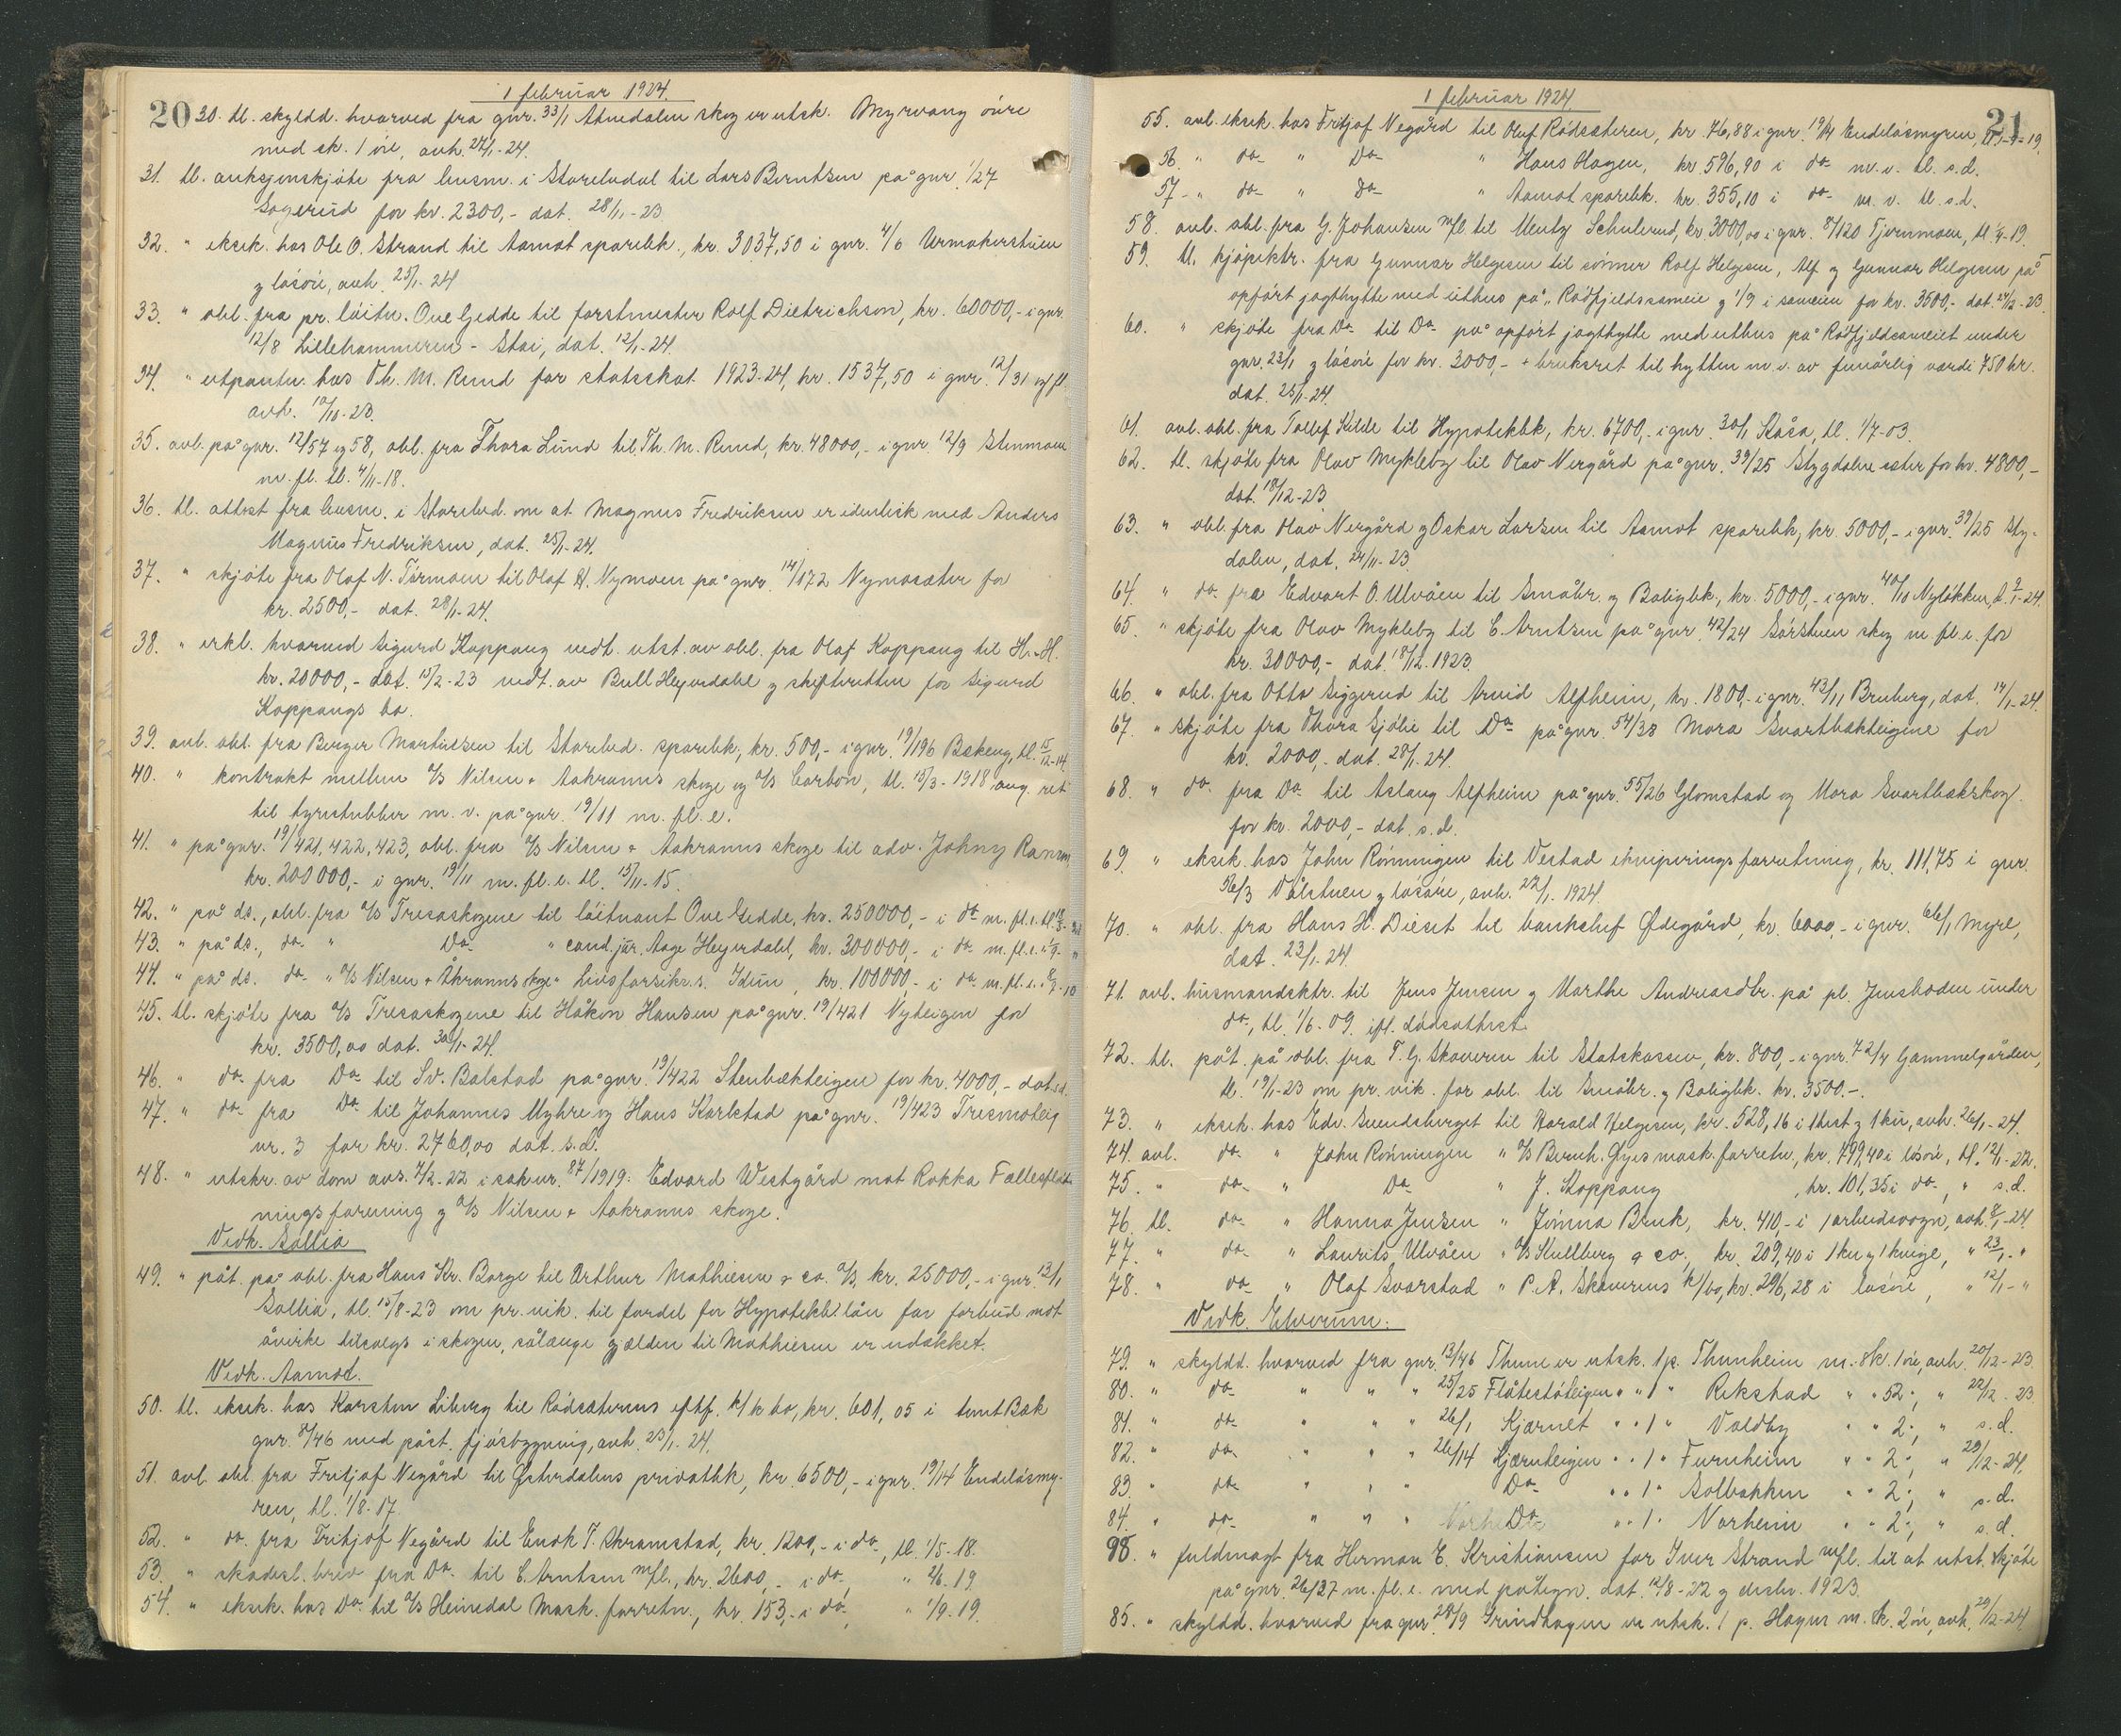 1 februar 1924.
20 30. tl. skyldd. hvorved fra gnr. 33/1 Atnedalen skog er utsk. Myrvang øvre
med sk. 1 øre, avh. 22/1-24.
31. tl. auksjonsskjöte fra lensm. i Storelvdal til Lars Berntsen på gnr. 1/27
Sagerud for kr. 2300,- dat. 28/11-23
32. " eksek. hos Ole O. Strand til Aamot sparebk., kr. 3037,50 i gnr. 4/6 Urmakerstuen
g lösöre, avh. 25/1-24
33. " obl. fra pr. löitn. Ove Gedde til forstmester Rolf Dietrichson, kr. 60000,- i gnr.
12/8 Lillehammeren - Stai, dat. 12/1-24.
34. " utpantn. hos Th. M. Rund for statsskat 1923-24, kr. 1537,50 i gnr. 12/31 m. fl.
avh. 10/10-23.
35. avl. på gnr. 12/57 og 58, obl. fra Thora Lund til Th. M. Rund, kr. 48000,- i gnr 12/9 Stenmoen
m. fl. tl. 4/11-18.
36. tl. attest fra lensm. i Storelvd. om at Magnus Fredriksen er identisk med Anders
Magnus Fredriksen, dat. 25/1-24.
37. " skjöte fra Olaf N. Törmoen til Olaf H. Nymoen på gnr. 14/172 Nymosæter for
kr. 2500,- dat. 28/1-24.
38. " erkl. hvorved Sigurd Koppang vedt. utst. av obl. fra Olaf Koppang til H.-H.
kr. 20000,- dat. 15/2-23 vedt. av Bull Heyerdahl g skifteretten for Sigurd
Koppangs bo.
39. avl. obl. fra Berger Martinsen til Storelvd. sparebk., kr. 500,- i gnr. 19/196 Bekeng, tl. 15/12-14.
40. " kontrakt mellem A/S Nilsen & Aakranns skoge og A/S Carbon, tl. 15/3-1918 ang. ret
til tyristubber m. v. på gnr. 19/11 m. fl. e.
41. " på gnr. 19/421, 422, 423, obl. fra A/S Nilsen & Aakranns skoge til adv. Johny Ramm
kr. 200000,- i gnr. 19/11 m. fl. e. tl. 15/11-15.
42. " på ds., obl. fra A/S Tresaskogene til löitnant Ove Gedde, kr. 250000,- i do m. fl. e. tl.
43. " på ds., do " Do " cand. jur. Aage Heyerdahl, kr. 300000,- i do m. fl. e.
44. " på ds. do " A/S Nilsen & Åkranns skoge " Livsforsikr.s. Idun, kr. 100000,- i do m. fl. e.
45. tl. skjöte fra A/S Tresaskogene til Håkon Hansen på gnr. 19/421 Nyteigen for
kr. 3500,00 dat. 30/1-24.
46. " do fra Do til Sv. Balstad på gnr. 19/422 Stenbækteigen for kr. 4000,- dat. s.d.
47. " do fra Do til Johannes Myhre og Hans Karlstad på gnr. 19/423 Tresmoteig
nr. 3 for kr. 2760,00 dat. s. d.
48. " utskr. av dom avs. 7/2-22 i sak nr. 87/1919: Edvard Westgård mot Rokka Fællesfløt-
ningsforening g A/S Nilsen & Aakranns skoge.
Vedk. Sollia
49. " påt. på obl. fra Hans Kr. Borge til Arthur Mathiesen & co. A/S, kr. 25000,- i gnr. 13/1
Sollia, tl. 15/8-23 om pr. vik. til fordel for Hypotekbk lån for forbud mot
åvirke tilsalgs i skogen, sålænge gjælden til Mathiesen er udækket.
Vedk. Aamot.
50. tl. eksek. hos Karsten Liberg til Rödsæterens eftf. k/k bo, kr. 601,05 i tomt Bæk
gnr. 8/46 med påst. fjösbygning, avh. 23/1-24.
51. avl. obl. fra Fritjof Negård til Østerdalens privatbk, kr. 6500,- i gnr. 19/14 Endelösmy-
ren, tl. 1/8-17.
52. " do. fra Fritjof Negård til Endk T. Skramstad, kr. 1200,- i do, tl. 1/5-18.
53. " skadesl. brev fra Do til C. Arntsen mfl., kr. 2600,- i do, " 2/6-19
54. " eksek. hos Do til A/S Heimdal Mask. forretn., kr. 153,- i do, " 1/9-19.
1 februar 1924
21
55. avl. eksek. hos Fritjof Negård til Oluf Rödsæteren, kr. 76,88 i gnr. 19/14 Endelösmyren,
56. " do " Do " Hans Hagen, kr. 596,90 i do m. v. tl. s. d.
57. " do " Do " Aamot sparebk. kr. 355,10 i do m. v. tl. s. d.
58. avl. obl. fra G. Johansen mfl. til Mentz Schulerud, kr. 3000,00 i gnr. 8/120 Tjernmoen, tl.
59. tl. kjöpektr. fra Gunnar Helgesen til sönner Rolf Helgesen, Alf g Gunnar Helgesen på
opfört jagthytte med uthus på "Rödfjeldssameie g 1/9 i sameien for kr. 3500,- dat. 27/12-23
60. " skjöte fra Do til Do på opfört jagthytte med uthus på Rödfjeldsameiet under
gnr. 23/1 g lösöre for kr. 3000,- + bruksret til hytten m. v. av femårlig værdi 750 kr.
dat. 25/1-24.
61. avl. obl. fra Tollef Kilde til Hypotekbk, kr. 6700,- i gnr. 30/1 Skåsa, tl. 1/7-03.
62. tl. skjöte fra Olav Mykleby til Olav Nergård på gnr. 39/25 Stygdalen øster for kr. 4800,-
dat. 18/12-23
63. " obl. fra Olav Nergård g Oskar Larsen til Aamot sparebk, kr. 5000,- i gnr. 39/25 Sty-
dalen, dat. 24/11-23.
64. " do fra Edvart O. Ulvåen til Småbr. g Boligbk., kr. 5000,- i gnr. 40/10 Nylökken, d. 9/1-24.
65. " skjöte fra Olav Mykleby til C. Arntsen på gnr. 42/24 Sörstuen skog m fl. e. for
kr. 30000,- dat. 18/12.1923.
66. " obl. fra Otto Siggerud til Arvid Alfheim, kr. 1800,- i gnr. 43/11 Bruberg, dat. 14/1-24.
67. " skjöte fra Thora Sjölie til Do på gnr. 54/38 Mora Svartbækteigene for
kr. 2000,- dat. 28/1-24.
68. " do fra Do til Aslaug Alfheim på gnr. 55/26 Glomstad og Mora Svartbækskog.
for kr. 2000,- dat. s. d.
69. " eksek. hos John Rönningen til Vestad ekviperingsforretning, kr. 111,75 i gnr.
56/3 Volstuen g lösöre, avh. 22/1.1924.
70. " obl. fra Hans H. Dieset til banksjef Ødegård, kr. 6000,- i gnr. 66/1 Myre,
dat. 23/1-24.
71. avl. husmandsktr. til Jens Jensen g Marthe Andreasdtr. på pl. Jensboden under
do, tl. 1/6-09. ifl. dödsattest.
72. tl. påt. på obl. fra T. G. Skoveren til Statskassen, kr. 800,- i gnr. 72/4 Gammelgården,
tl. 19/1-23 om pr. vik. for obl. til Småbr. g Boligbk. kr. 3500.-.
73. " eksek. hos Edv. Svendsberget til Harald Helgesen, kr. 528,16 i 1 hest g 1 ku, avh. 26/1-24.
74. avl. do " John Rönningen " A/S Bernh. Øyes mask. forretn, kr. 499,40 i lösöre, tl. 12/1-22.
75. " do " Do " J. Koppang, kr. 101,35 i do, " s. d.
76. tl. do " Hanna Jensen " Jömna Bruk, kr. 410,- i 1 arbeidsvogn, avh. 8/1-24
77. " do " Laurits Ulvåen " A/S Kullberg & co, kr. 209,40 i 1 ku g 1 kvige, " 23/1-"
78. " do " Olaf Svarstad " P. A. Skoverens k/bo, kr. 296,28 i lösöre, " 12/1-"
Vedk. Elverum.
79. " skyldd. hvorved fra gnr. 13/46 Thune er utsk. 1 p. Thunheim m. sk. 1 öre, avh. 20/12-23
80. " do " " " 25/25 Flåtestöteigen " " 1 " Rekstad " " 52 ", " 22/12-23
81. " do " " " 26/1 Kjærnet " " 1 " Valdby " " 2 ", " s. d.
82. " do " " " 26/14 Kjærnteigen " " 1 " Furuheim " " 2 ", " 29/12-24.
83. " do " " " Do " " 1 " Solbakken " " 2 ", " s. d.
84. " do " " " Do " " 1 " Norheim " " 2 ", " s. d.
98. " fuldmagt fra Herman E. Kristiansen for Iver Strand mfl. til at utst. skjöte
på gnr. 26/27 m. fl. e. med påtegn. dat. 12/8-22 g desbr. 1923.
85. " skyldd. hvorved fra gnr. 28/9 Grindhagen er utsk. 1 p. Hagen m. sk. 2 öre, avh. 29/12-24